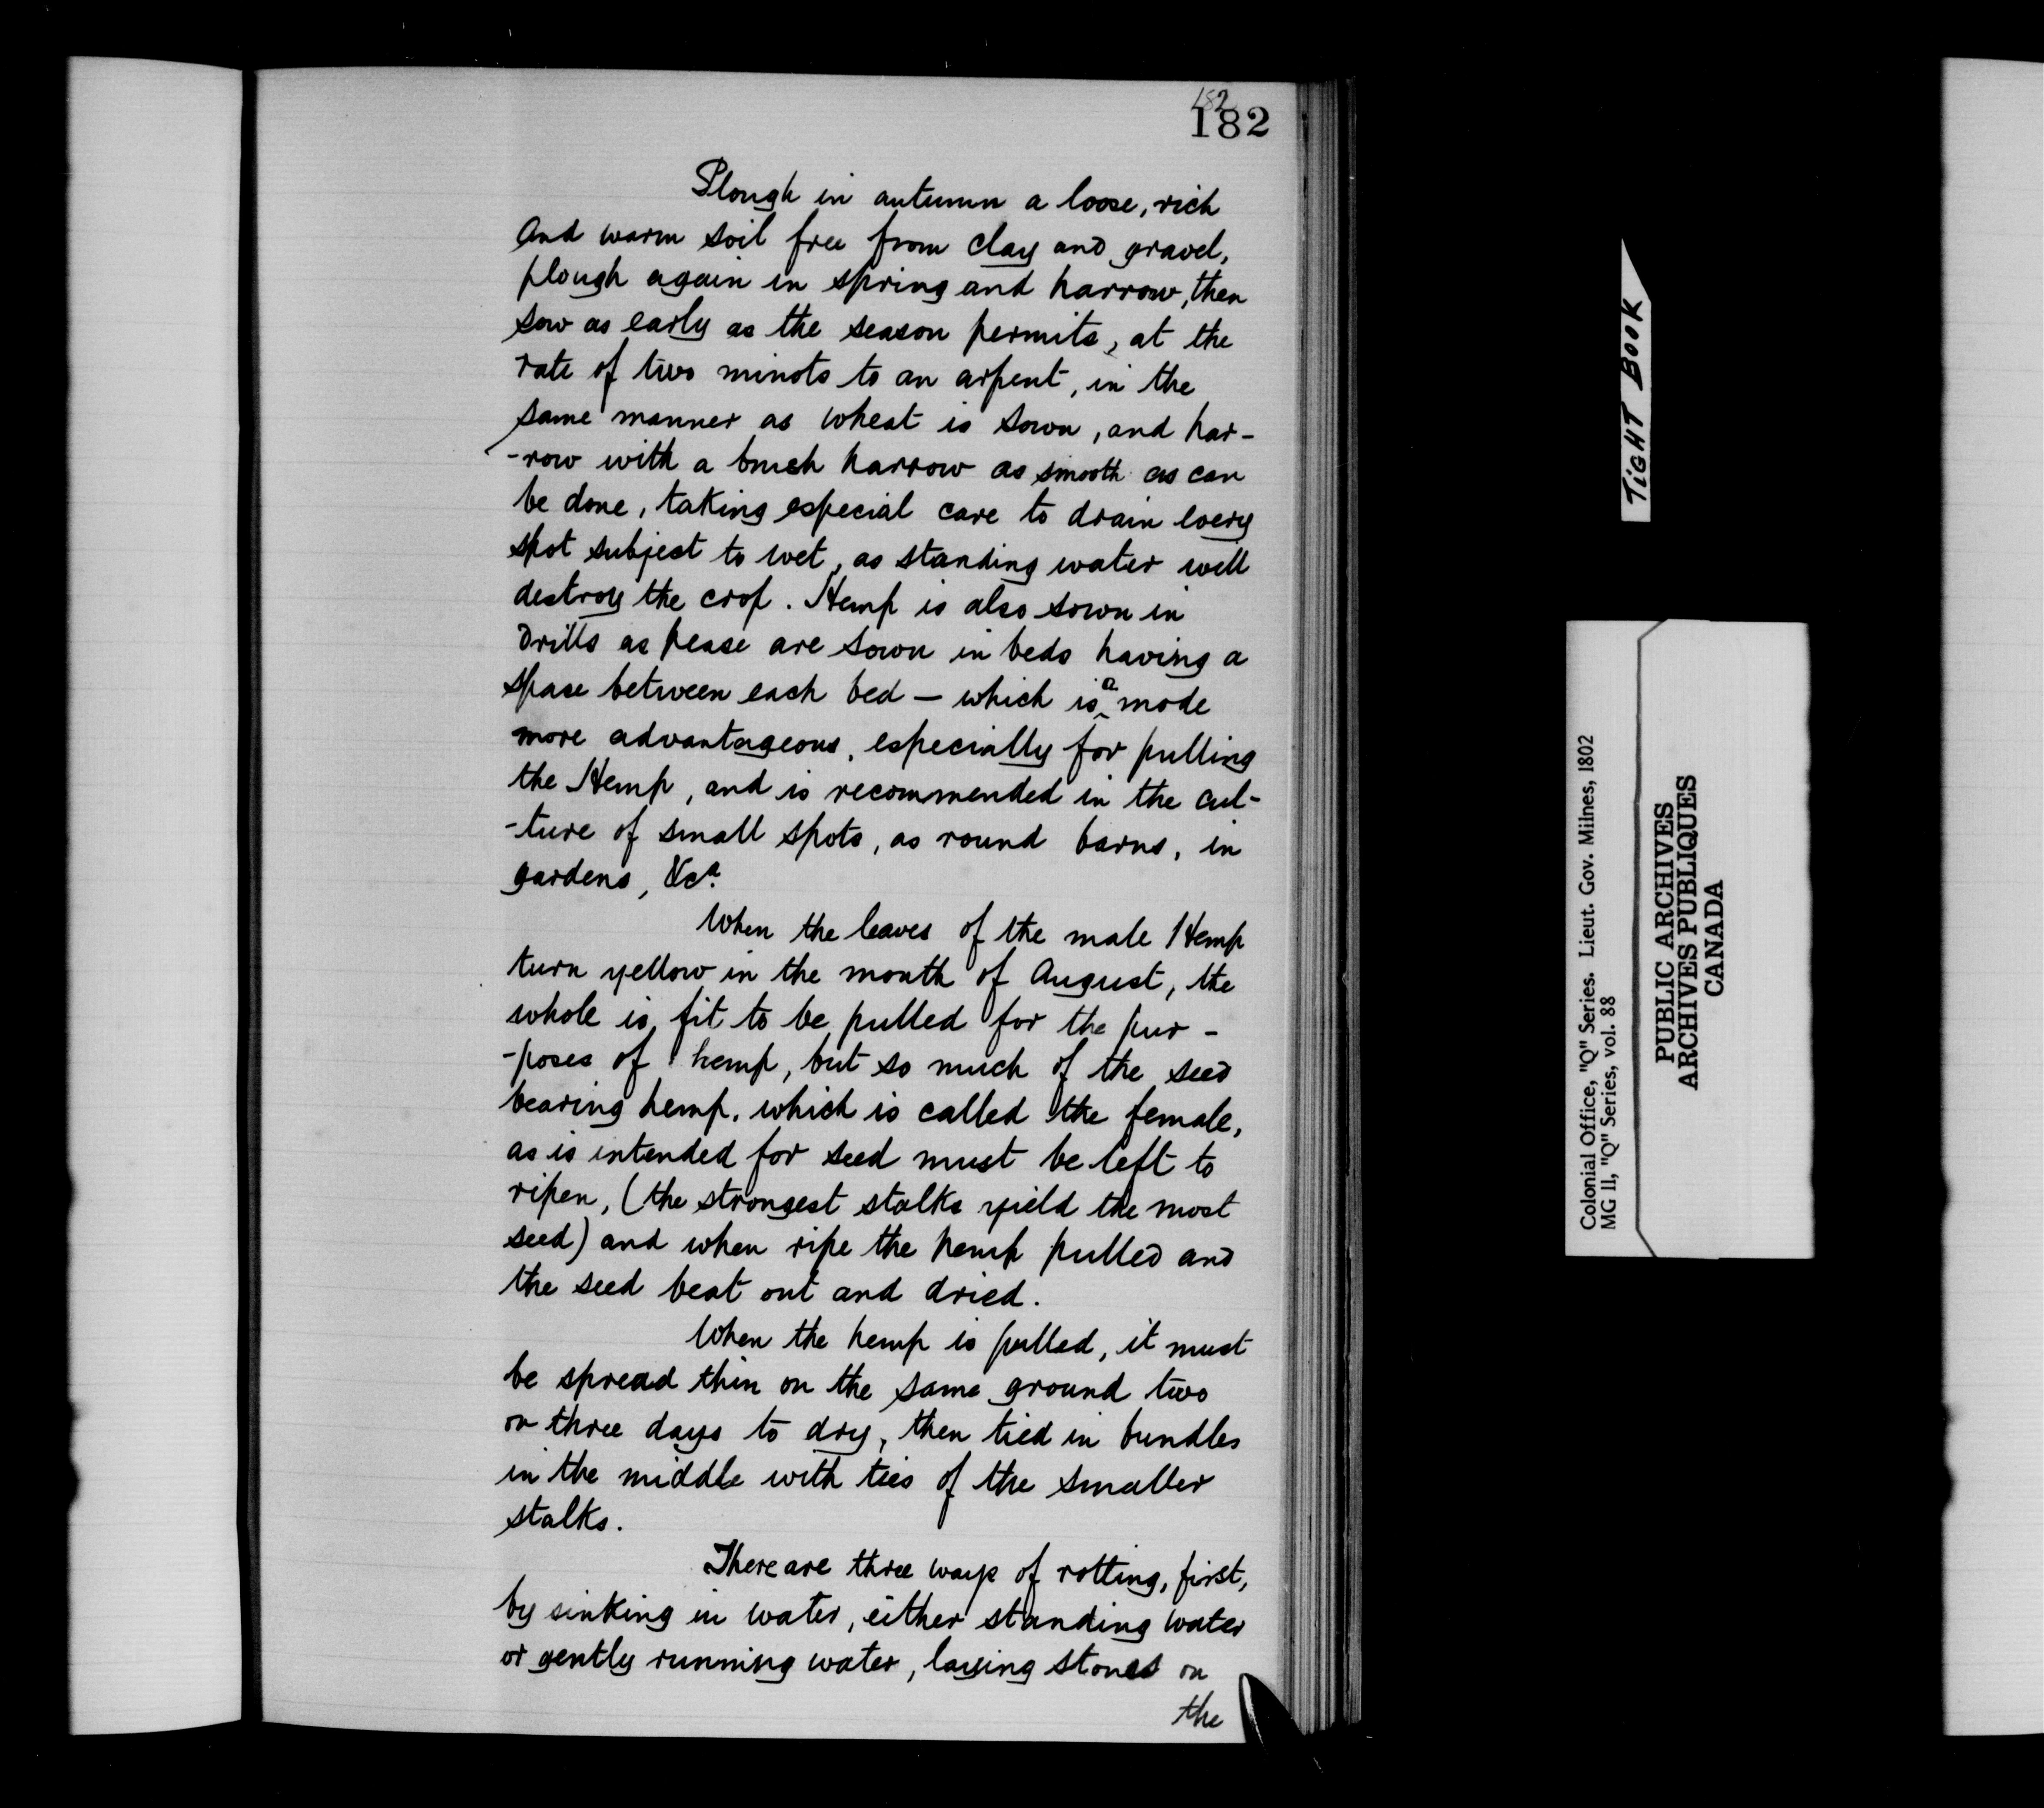 182
182
Plough in autumn a loose, rich
and warm soil free from clay and gravel,
plough again in spring and harrow, then
sow as early as the season permits, at the
rate of two minots to an arpent, in the
same manner as wheat is sown, and har-
-row with a brush harrow as smooth as can
be done, taking especial care to drain every
spot subject to wet, as standing water will
destroy the crop. Hemp is also sown in
drills as pease are sown in beds having a
space between each bed — which is a mode
more advantageous, especially for pulling
the Hemp, and is recommended in the cul-
-ture of small spots, as round barns, in
gardens, &ca.
When the leaves of the male Hemp
turn yellow in the month of August, the
whole is fit to be pulled for the pur-
-poses of hemp, but so much of the seed
bearing hemp, which is called the female,
as is intended for seed must be left to
ripen, (the strongest stalks yield the most
seed) and when ripe the hemp pulled and
the seed beat out and dried.
When the hemp is pulled, it must
be spread thin on the same ground two
or three days to dry, then tied in bundles
in the middle with ties of the smaller
stalks.
There are three ways of rotting, first,
by sinking in water, either standing water
or gently running water, laying stones on
the
TIGHT BOOK
Colonial Office, "Q" Series. Lieut. Gov. Milnes, 1802
MG 11, "Q" Series, vol. 88
PUBLIC ARCHIVES
ARCHIVES PUBLIQUES
CANADA